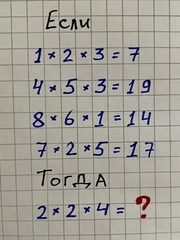 Если
1 * 2 * 3 = 7
4 * 5 * 3 = 19
8 * 6 * 1 = 14
7 * 2 * 5 = 17
Тогда
2 * 2 * 4 = ?